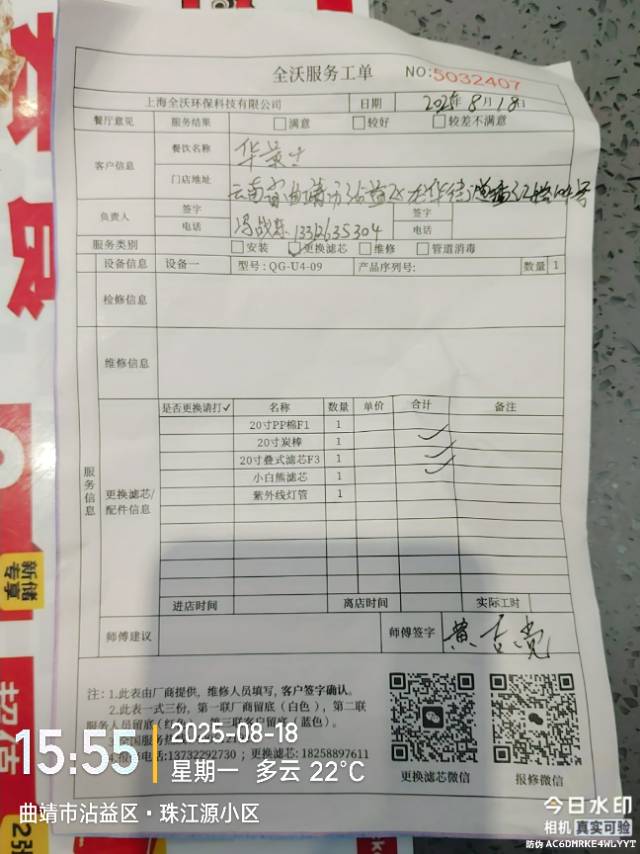 全沃服务工单 NO:5032407
上海全沃环保科技有限公司 日期 2025年8月18日
餐厅意见 服务结果 满意 较好 较差不满意
客户信息 餐饮名称 华莱士
门店地址 云南省曲靖市沾益区龙华街道
负责人 签字 签字
电话 电话
服务类别 安装 更换滤芯 维修 管道消毒
设备信息 设备一 型号:QG-U4-09 产品序列号: 数量 1
检修信息
维修信息
服务信息
更换滤芯/配件信息
是否更换请打✓ 名称 数量 单价 合计 备注
20寸PP棉F1 1
20寸炭棒 1
20寸叠式滤芯F3 1
小白熊滤芯 1
紫外线灯管 1
进店时间 离店时间 实际工时
师傅建议 师傅签字
注:1.此表由厂商提供,维修人员填写,客户签字确认。
2.此表一式三份,第一联厂商留底(白色),第二联
服务人员留底(红色),第三联客户留底(蓝色)。
电话:13732292730;更换滤芯:18258897611
更换滤芯微信 报修微信
15:55 2025-08-18
星期一 多云 22°C
曲靖市沾益区·珠江源小区
今日水印
相机 真实可验
防伪 AC6DMRKE4WLYYT
新储
专享
招待